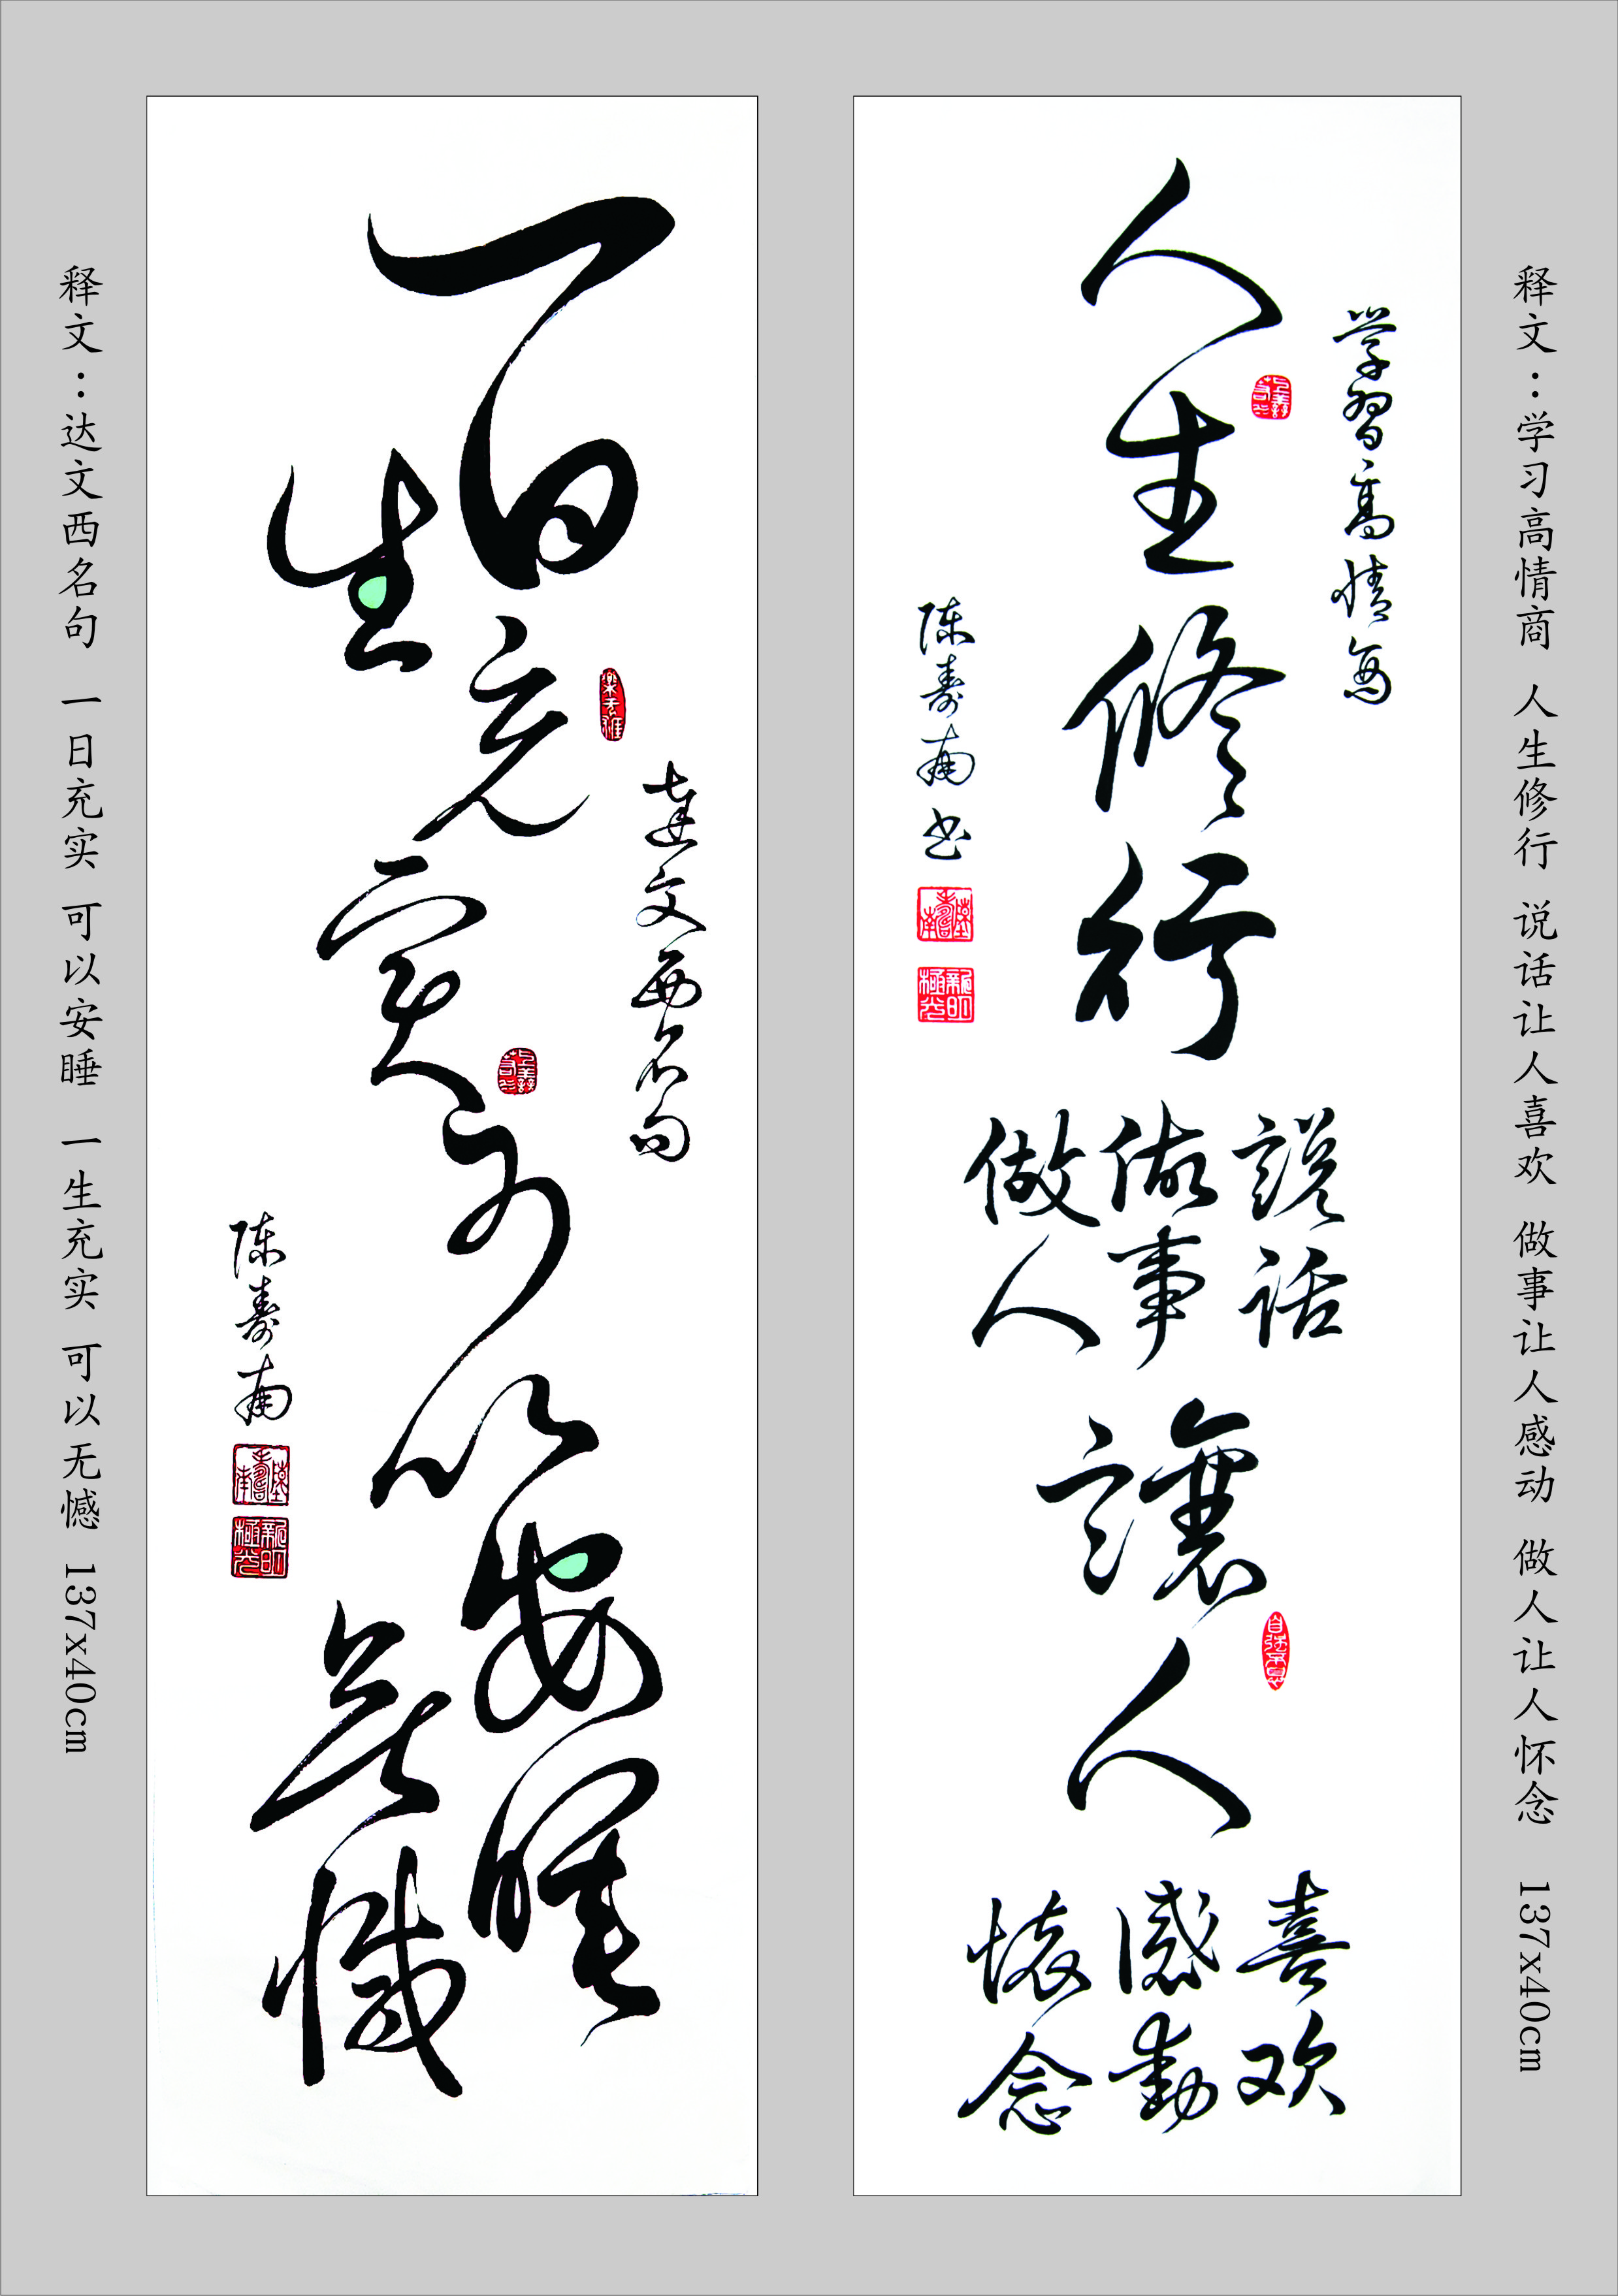 释文：学习高情商 人生修行 说话让人喜欢 做事让人感动 做人让人怀念 137x40cm
學習高情商
人生修行
說話
做事
做人
讓人
喜欢
感動
懷念
陈寿南书
達文西名句
一日
充实可以安睡
生
無憾
陈寿南
释文：达文西名句 一日充实 可以安睡 一生充实 可以无憾 137x40cm